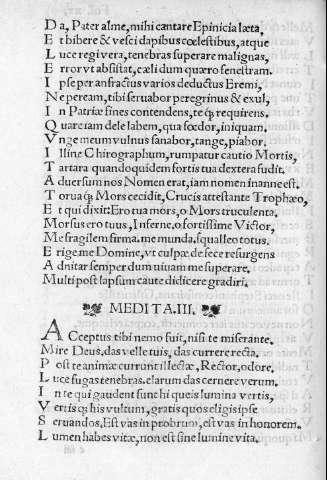 Da, Pater alme, mihi cantare Epinicia læta,
Et bibere & vesci dapibus cœlestibus, atque
Luce regi vera, tenebras superare malignas,
Error vt absistat, cæli dum quæro fenestram.
Ipse per anfractus varios deductus Eremi,
Ne peream, tibi seruabor peregrinus & exul,
In Patriæ fines contendens, te q3 requirens.
Quare iam dele labem, qua fœdor, iniquam.
Vnge meum vulnus sanabor, tange, piabor.
Illine Chirographum, rumpatur cautio Mortis,
Tartara quandoquidem fortis tua dextera fudit.
Aduersum nos Nomen erat, iam nomen inanne est.
Torua q3 Mors cecidit, Crucis attestante Trophæo,
Et qui dixit: Ero tua mors, o Mors truculenta.
Morsus ero tuus, Inferne, o fortissime Victor,
Me fragilem firma. me munda, squalleo totus.
Erige me Domine, vt culpa, de fece resurgens
Adnitar semper dum viuam me superare.
Multi post lapsum caute didicere gradiri.
MEDITA. III.
ACceptus tibi nemo fuit, nisi te miserante.
Mire Deus, das velle tuis, das currere recta.
Post te animæ currunt illectæ, Rector, odore.
Luce fugas tenebras. clarum das cernere verum.
In te qui gaudent sunt hi queis lumina vertis,
Vertis q3 his vultum, gratis quos eligis ipse
Seruandos. Est vas in probrum, est vas in honorem.
Lumen habes vitæ, non est sine lumine vita.